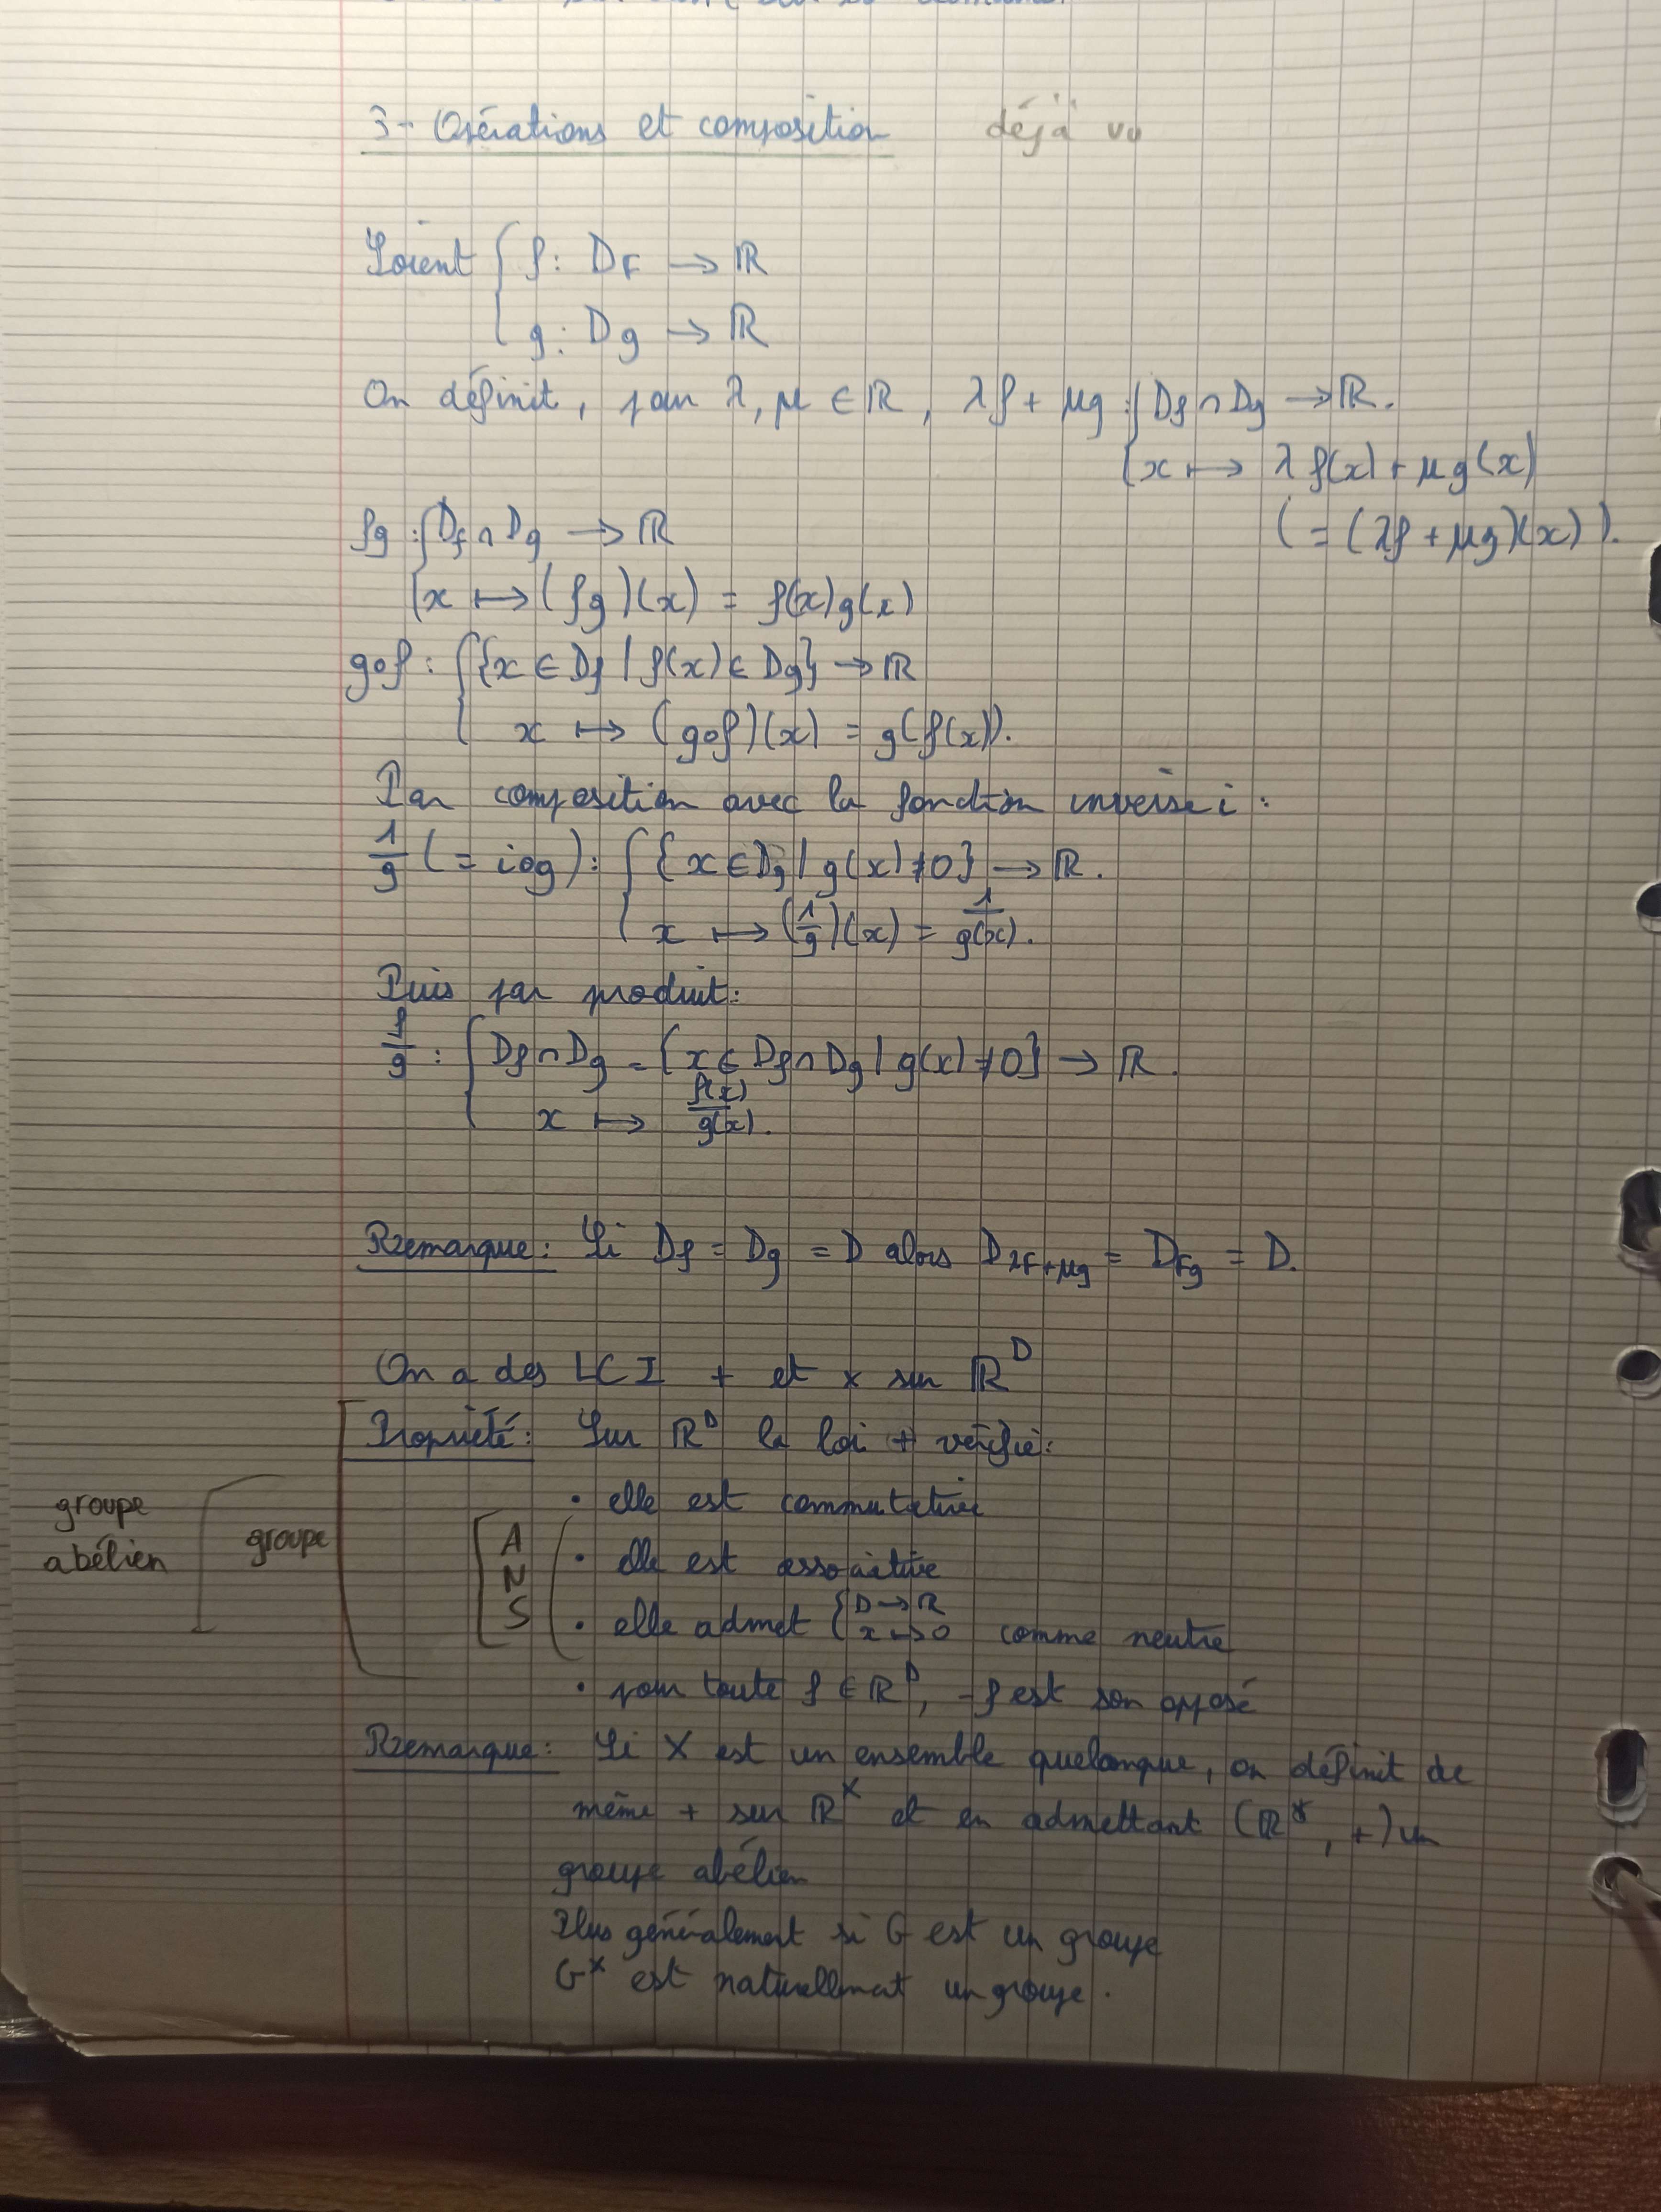 3- Opérations et composition déjà vu
Soient { f : Df → ℝ
{ g : Dg → ℝ
On définit, pour λ, μ ∈ ℝ, λf + μg : { Df ∩ Dg → ℝ.
{ x ↦ λf(x) + μg(x)
(= (λf + μg)(x)).
fg : { Df ∩ Dg → ℝ
{ x ↦ (fg)(x) = f(x)g(x)
g∘f : { {x ∈ Df | f(x) ∈ Dg} → ℝ
{ x ↦ (g∘f)(x) = g(f(x)).
Par composition avec la fonction inverse i :
1/g (= i∘g) : { {x ∈ Dg | g(x) ≠ 0} → ℝ.
{ x ↦ (1/g)(x) = 1/g(x).
Puis par produit :
f/g : { Df ∩ Dg = {x ∈ Df ∩ Dg | g(x) ≠ 0} → ℝ.
{ x ↦ f(x)/g(x).
Remarque : Si Df = Dg = D alors Dλf+μg = Dfg = D.
On a des LCI + et × sur ℝ^D
Propriété : Sur ℝ^D la loi + vérifie :
• elle est commutative
groupe abélien groupe A N S
• elle est associative
• elle admet { D → ℝ x ↦ 0 comme neutre
• pour toute f ∈ ℝ^D, -f est son opposé
Remarque : Si X est un ensemble quelconque, on définit de
même + sur ℝ^X et en admettant (ℝ^X, +) un
groupe abélien
Plus généralement si G est un groupe
G^X est naturellement un groupe.